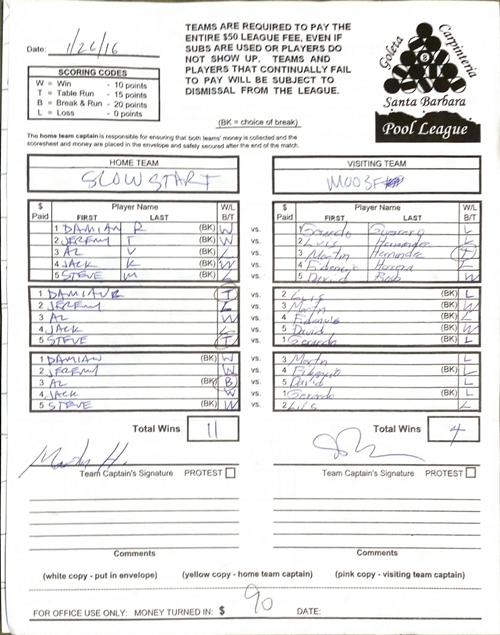 Date: 1/26/16
TEAMS ARE REQUIRED TO PAY THE
ENTIRE $50 LEAGUE FEE, EVEN IF
SUBS ARE USED OR PLAYERS DO
NOT SHOW UP. TEAMS AND
PLAYERS THAT CONTINUALLY FAIL
TO PAY WILL BE SUBJECT TO
DISMISSAL FROM THE LEAGUE.
Goleta
Carpinteria
8
Santa Barbara
Pool League
SCORING CODES
W = Win - 10 points
T = Table Run - 15 points
B = Break & Run - 20 points
L = Loss - 0 points
(BK = choice of break)
The home team captain is responsible for ensuring that both teams' money is collected and the
scoresheet and money are placed in the envelope and safely secured after the end of the match.
HOME TEAM VISITING TEAM
SLOW START MOOSE
$ Paid Player Name FIRST LAST W/L B/T $ Paid Player Name FIRST LAST W/L B/T
1 DAMIAN R (BK) W vs. 1 Gerardo L
2 JEREMY T (BK) W vs. 2 Luis Hernandez L
3 AL V (BK) L vs. 3 Martin Hernandez T
4 JACK K (BK) W vs. 4 Herrera L
5 STEVE M (BK) L vs. 5 David W
1 DAMIAN R T vs. 2 Luis (BK) L
2 JEREMY L vs. 3 Martin (BK) W
3 AL W vs. 4 (BK) L
4 JACK L vs. 5 David (BK) W
5 STEVE T vs. 1 Gerardo (BK) L
1 DAMIAN (BK) W vs. 3 Martin L
2 JEREMY (BK) W vs. 4 L
3 AL (BK) B vs. 5 David L
4 JACK (BK) W vs. 1 Gerardo L
5 STEVE (BK) W vs. 2 Luis L
Total Wins 11 Total Wins 4
Team Captain's Signature PROTEST Team Captain's Signature PROTEST
Comments Comments
(white copy - put in envelope) (yellow copy - home team captain) (pink copy - visiting team captain)
FOR OFFICE USE ONLY: MONEY TURNED IN: $ 90 DATE: